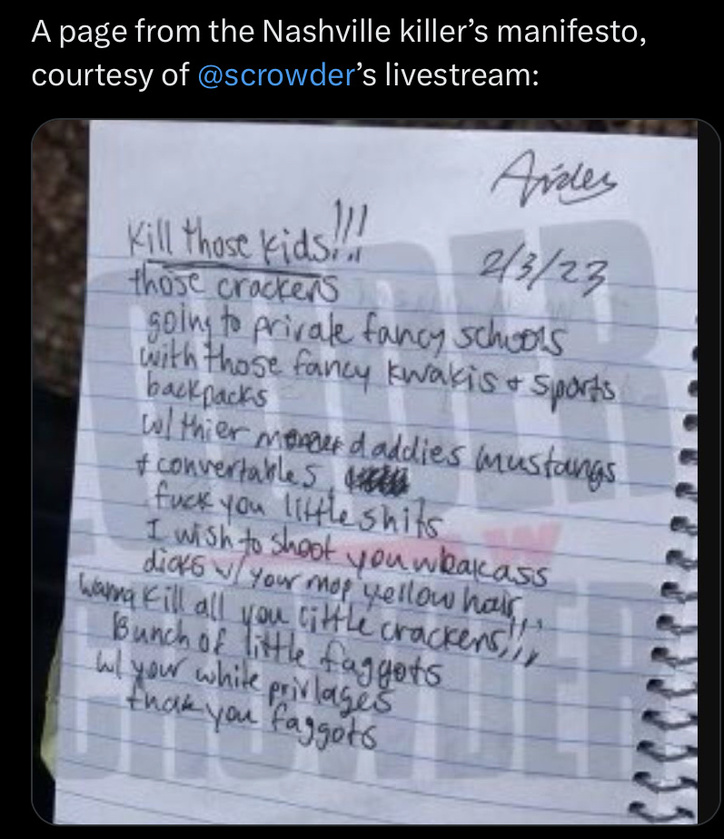 A page from the Nashville killer's manifesto,
courtesy of @scrowder's livestream:
Aiden
2/3/23
Kill those kids!!!
those crackers
going to private fancy schools
with those fancy kwakis + sports
backpacks
w/ thier daddies mustangs
+ convertables
fuck you little shits
I wish to shoot you weakass
dicks w/ your mop yellow hair,,,
wanna kill all you little crackers!!,,
Bunch of little faggots
w/ your white privlages
fuck you faggots
CROWDER